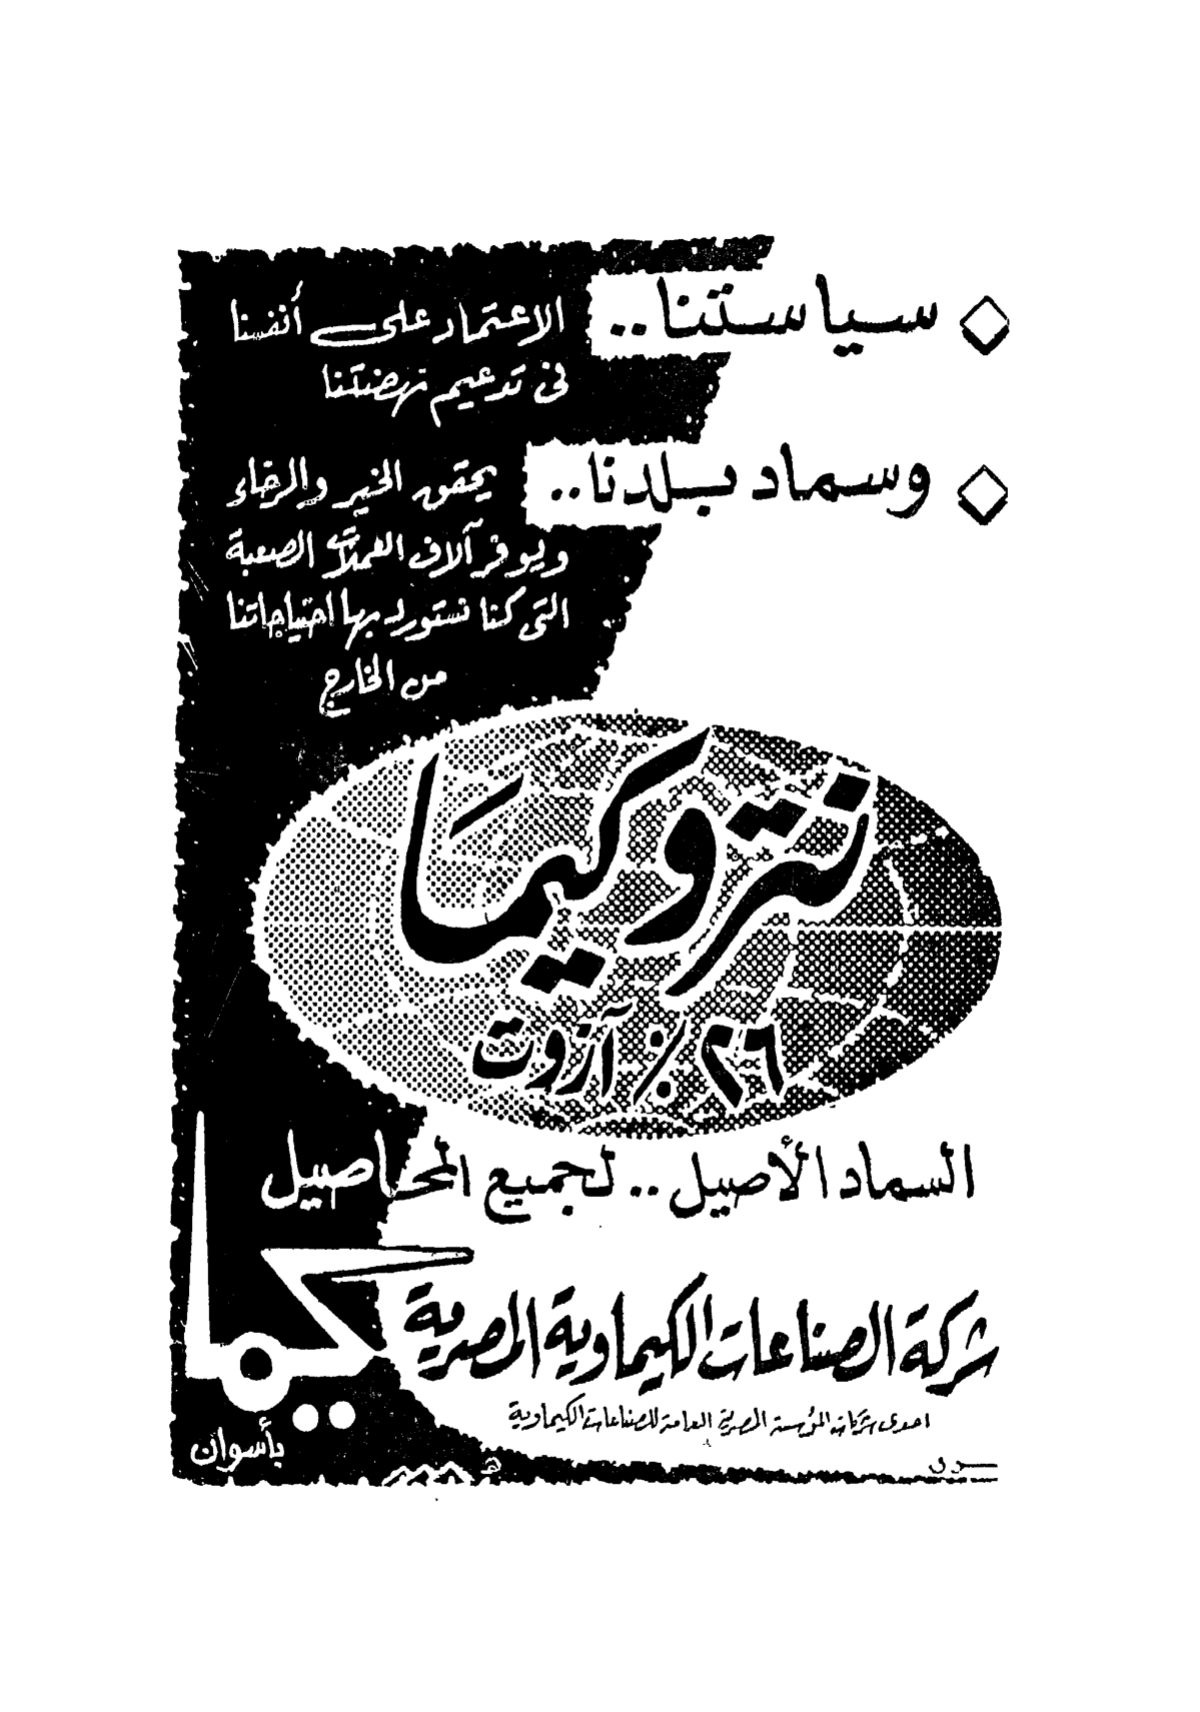 سياستنا.. الاعتماد على أنفسنا
فى تدعيم نهضتنا
وسماد بلدنا.. يحقق الخير والرخاء
ويوفر آلاف العملات الصعبة
التى كنا نستورد بها احتياجاتنا
من الخارج
نتروكيما
٢٦٪ آزوت
السماد الأصيل.. لجميع المحاصيل
كيما
شركة الصناعات الكيماوية المصرية
احدى شركات المؤسسة المصرية العامة للصناعات الكيماوية
بأسوان